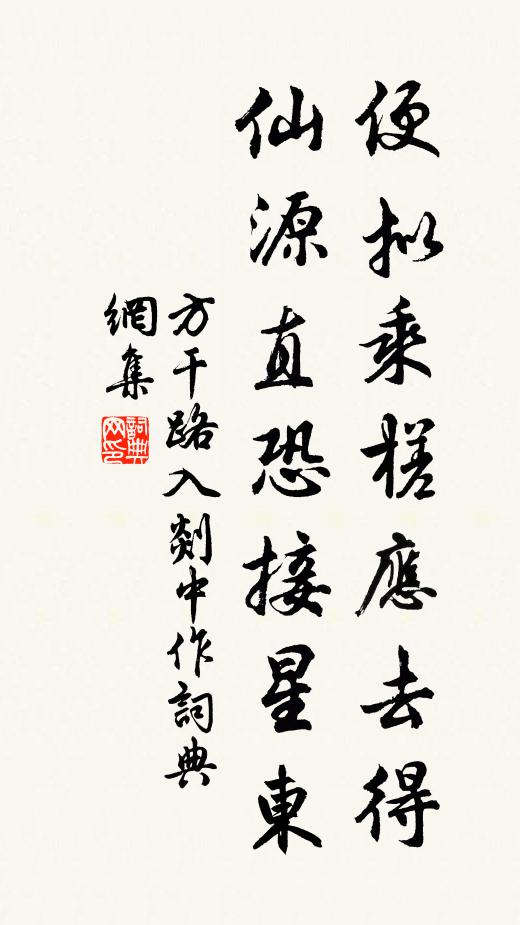 便拟乘槎應去得
仙源直恐接星東
方干路入剡中作詞典
網集
詞典
网印